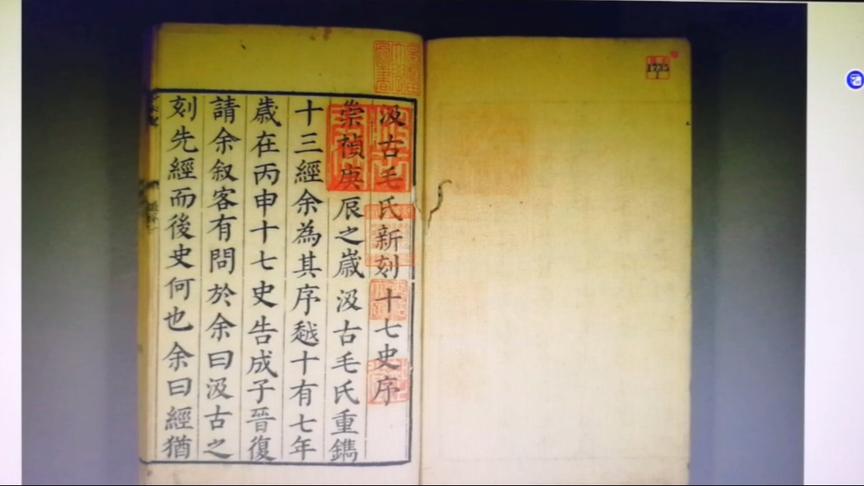 汲古毛氏新刻十七史序
崇禎庚辰之歲汲古毛氏重鐫
十三經余為其序越十有七年
歲在丙申十七史告成子晉復
請余叙客有問於余曰汲古之
刻先經而後史何也余曰經猶